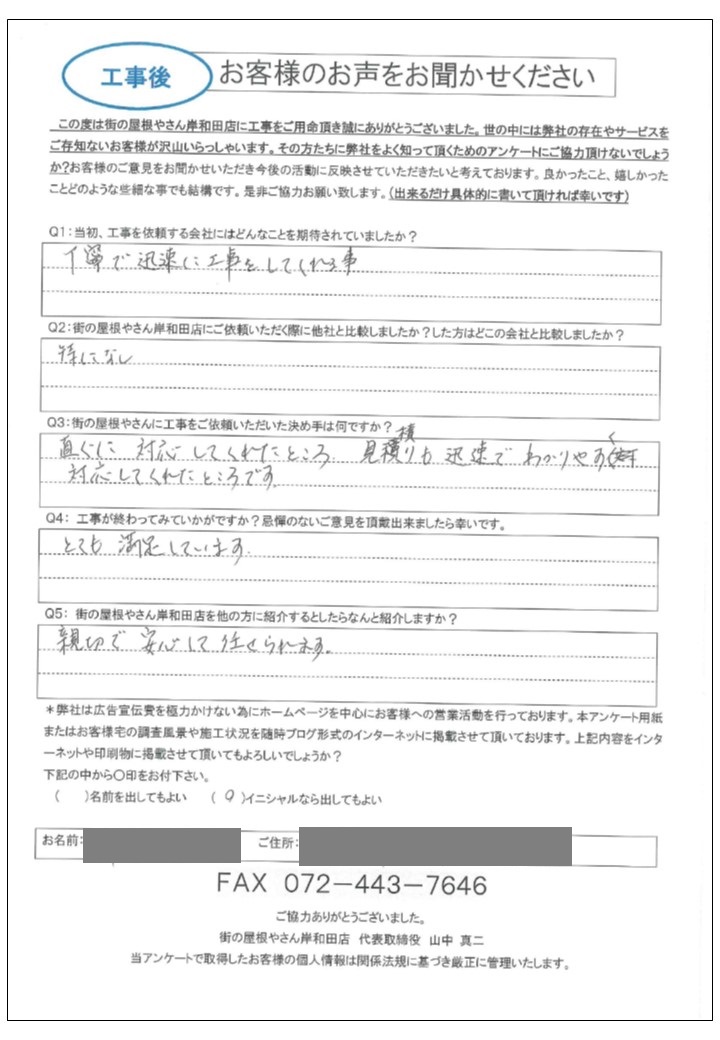 工事後
お客様のお声をお聞かせください
この度は街の屋根やさん岸和田店に工事をご用命頂き誠にありがとうございました。世の中には弊社の存在やサービスを
ご存知ないお客様が沢山いらっしゃいます。その方たちに弊社をよく知って頂くためのアンケートにご協力頂けないでしょう
か?お客様のご意見をお聞かせいただき今後の活動に反映させていただきたいと考えております。良かったこと、嬉しかった
ことどのような些細な事でも結構です。是非ご協力お願い致します。(出来るだけ具体的に書いて頂ければ幸いです)
Q1:当初、工事を依頼する会社にはどんなことを期待されていましたか?
丁寧で迅速に工事をしてくれる事
Q2:街の屋根やさん岸和田店にご依頼いただく際に他社と比較しましたか?した方はどこの会社と比較しましたか?
特になし
Q3:街の屋根やさんに工事をご依頼いただいた決め手は何ですか?
直ぐに対応してくれたところ 見積りも迅速でわかりやすく
対応してくれたところです
Q4: 工事が終わってみていかがですか?忌憚のないご意見を頂戴出来ましたら幸いです。
とても満足しています。
Q5: 街の屋根やさん岸和田店を他の方に紹介するとしたらなんと紹介しますか?
親切で安心して任せられます。
*弊社は広告宣伝費を極力かけない為にホームページを中心にお客様への営業活動を行っております。本アンケート用紙
またはお客様宅の調査風景や施工状況を随時ブログ形式のインターネットに掲載させて頂いております。上記内容をインタ
ーネットや印刷物に掲載させて頂いてもよろしいでしょうか?
下記の中から○印をお付下さい。
( )名前を出してもよい (○)イニシャルなら出してもよい
お名前: ご住所:
FAX 072-443-7646
ご協力ありがとうございました。
街の屋根やさん岸和田店 代表取締役 山中 真二
当アンケートで取得したお客様の個人情報は関係法規に基づき厳正に管理いたします。